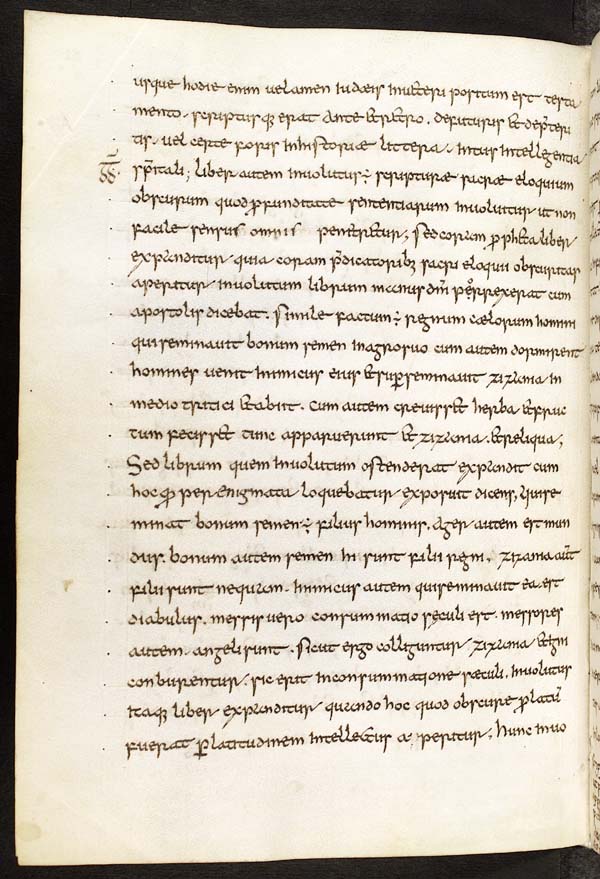 usque hodie enim uelamen iudæis in uetteri positum est testa
mento. scriptusq; erat ante & retro. de futuris & de p̄teri
tis. uel certe foris in historiæ littera. intus intellegentia
sp̄itali; liber autem inuolutus ÷ scripturæ sacræ eloquium
obscurum quod profunditate sententiarum inuoluitur ut non
facile sensus omnis penetretur; sed coram proph&a liber
expanditur quia coram p̄dicatorib; sacri eloquii obscuritas
aperitur. inuolutum librum manus dn̄i porrexerat cum
apostolis dicebat. simile factum ÷ regnum cælorum homini
qui seminauit bonum semen in agro suo cum autem dormirent
homines uenit inimicus eius & superseminauit zizania in
medio tritici & abiit. cum autem creuiss& herba & fruc
tum feciss& tunc apparuerunt & zizania. & reliqua;
Sed librum quem inuolutum ostenderat expandit cum
hoc quod per enigmata loquebatur exposuit dicens. Qui se
minat bonum semen ÷ filius hominis. Ager autem est mun
dus. bonum autem semen hi sunt filii regni. zizania aut̄
filii sunt nequam. inimicus autem qui seminauit ea. est
diabulus. messis uero consummatio sęculi est. messores
autem. angeli sunt. sicut ergo colliguntur zizania & igni
conburentur. sic erit in consummatione sæculi. inuolutus
itaq; liber expanditur quando hoc quod obscure prolatū
fuerat per latitudinem intellectus aperitur; hunc inuo